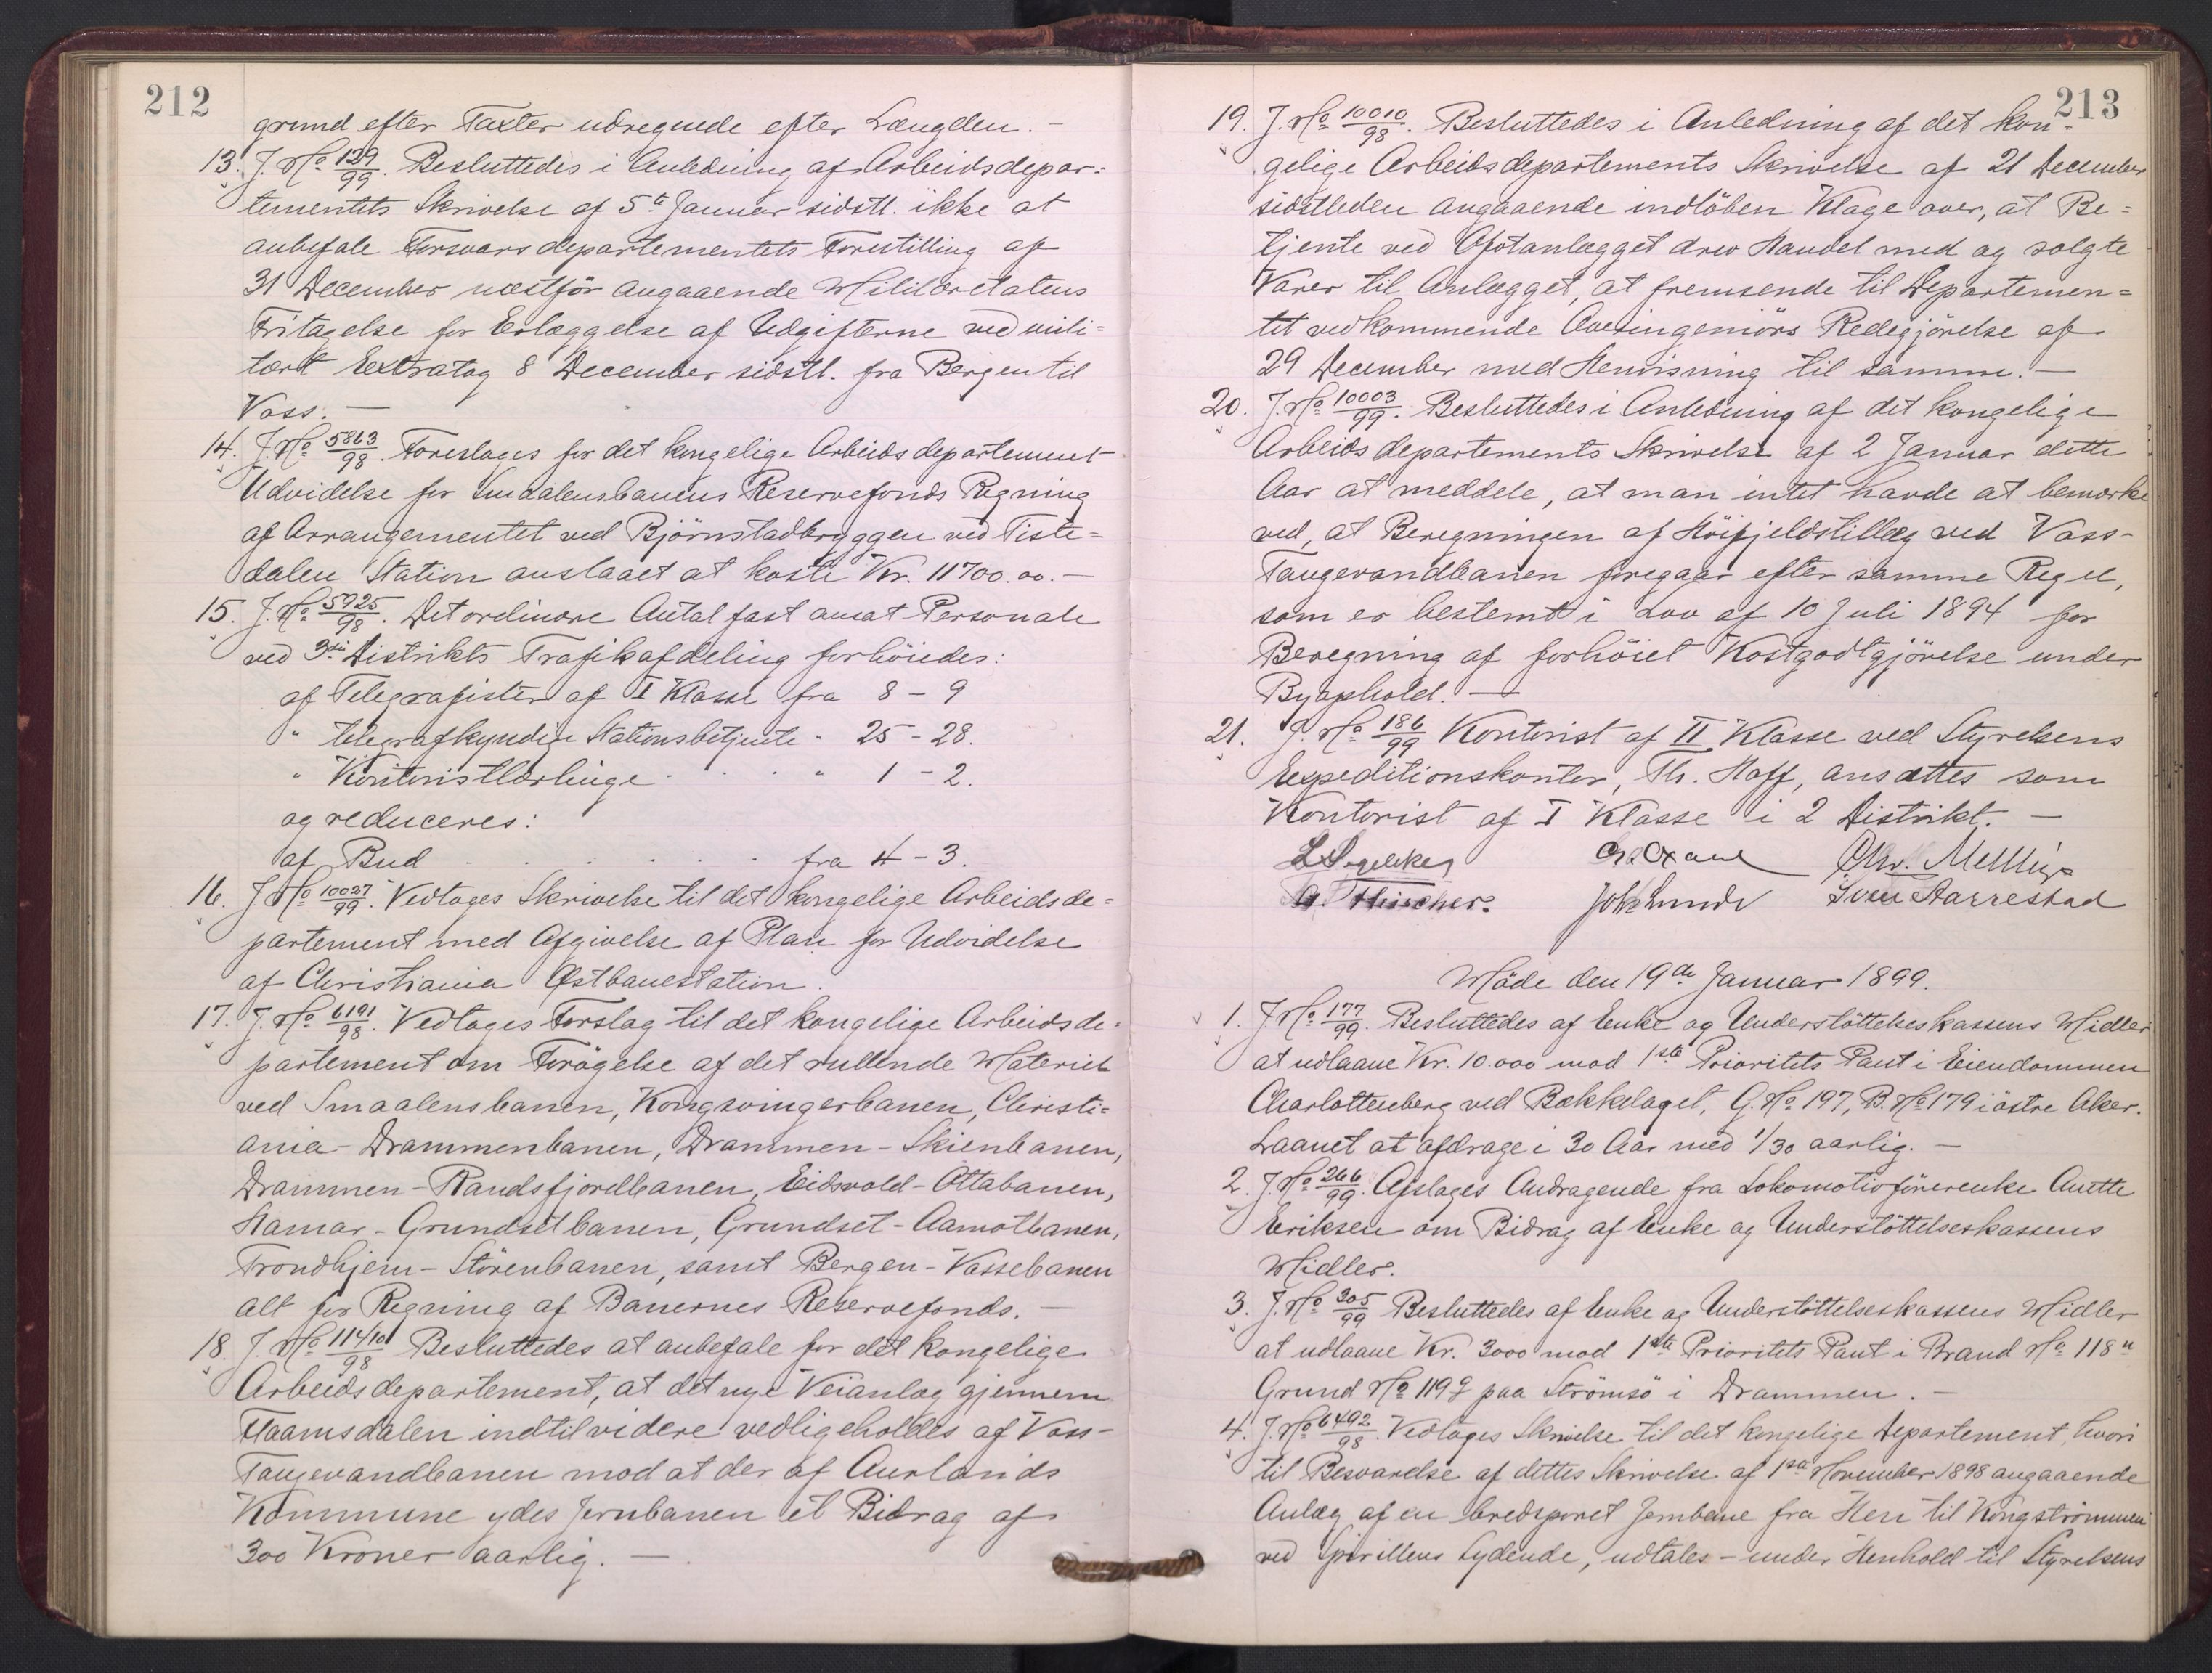 212
grund efter Taxter udregnede efter Længden. –
13. J. No 129/99. Besluttedes i Anledning af Arbeidsdepar=
tementets Skrivelse af 5te Januar sidstl. ikke at
anbefale Forsvarsdepartementets Forestilling af
31 December næstfør angaaende Militæretatens
Fritagelse for Erlæggelse af Udgifterne ved mili=
tært Extratog 8 December sidstl. fra Bergen til
Voss. –
14. J. No 5863/98. Foreslages for det kongelige Arbeidsdepartement
Udvidelse for Smaalensbanens Reservefonds Regning
af Arrangementet ved Bjørnstadbryggen ved Tiste=
dalen Station anslaaet at koste Kr. 11700.00. –
15. J. No 5925/98. Det ordinære Antal fast ansat Personale
ved 3die Distrikts Trafikafdeling forhøiedes:
af Telegrafister af I Klasse fra 8 – 9
" telegrafkyndige Stationsbetjente " 25 – 28.
" Kontoristlærlinge . . . " 1 – 2.
og reduceres:
af Bud . . . . . . fra 4 – 3.
16. J No 10027/99. Vedtoges Skrivelse til det kongelige Arbeidsde=
partement med Afgivelse af Plan for Udvidelse
af Christiania Østbanestation.
17. J. No 6191/98. Vedtoges Forslag til det kongelige Arbeidsde=
partement om Forøgelse af det rullende Materiel
ved Smaalensbanen, Kongsvingerbanen, Christi=
ania-Drammenbanen, Drammen-Skienbanen,
Drammen-Randsfjordbanen, Eidsvold-Ottabanen,
Hamar-Grundsetbanen, Grundset-Aamotbanen,
Trondhjem-Størenbanen, samt Bergen-Vossebanen
alt for Regning af Banernes Reservefonds. –
18. J. No 11410/98 Besluttedes at anbefale for det kongelige
Arbeidsdepartement, at det nye Veianlæg gjennem
Flaamsdalen indtilvidere vedligeholdes af Voss-
Taugevandbanen mod at der af Aurlands
Kommune ydes Jernbanen et Bidrag af
300 Kroner aarlig. –
213
19. J. No 10010/98. Besluttedes i Anledning af det kon=
gelige Arbeidsdepartements Skrivelse af 21 December
sidstleden angaaende indløben Klage over, at Be=
tjente ved Ofotanlægget drev Handel med og solgte
Varer til Anlægget, at fremsende til Departemen=
tet vedkommende Overingeniørs Redegjørelse af
29 December med Henvisning til samme. –
20. J. No 10003/99. Besluttedes i Anledning af det kongelige
Arbeidsdepartements Skrivelse af 2 Januar dette
Aar at meddele, at man intet havde at bemærke
ved, at Beregningen af Høifjeldstillæg ved Voss-
Taugevandbanen foregaar efter samme Regel,
som er bestemt i Lov af 10 Juli 1894 for
Beregning af forhøiet Kostgodtgjørelse under
Byophold. –
21. J. No 186/99 Kontorist af II Klasse ved Styrelsens
Expeditionskontor, Th. Hoff, ansættes som
Kontorist af I Klasse i 2 Distrikt. –
Chr.
Joh. Lunde Sven Aarrestad
Møde den 19de Januar 1899.
1. J No 177/99. Besluttedes af Enke og Understøttelseskassens Midler
at udlaane Kr. 10.000 mod 1ste Prioritets Pant i Eiendommen
Charlottenberg ved Bækkelaget, G. No 197, B. No 179 i østre Aker.
Laanet at afdrage i 30 Aar med 1/30 aarlig. –
2. J. No 266/99. Afslages Andragende fra Lokomotivførerenke Anette
Eriksen om Bidrag af Enke og Understøttelseskassens
Midler.
3. J. No 205/99 Besluttedes af Enke og Understøttelseskassens Midler
at udlaane Kr. 3000 mod 1ste Prioritets Pant i Brand No 118
Grund No 119 paa Strømsø i Drammen. –
4. J. No 6492/98. Vedtoges Skrivelse til det kongelige Departement, hvori
til Besvarelse af dettes Skrivelse af 1ste November 1898 angaaende
Anlæg af en bredsporet Jernbane fra Hen til Kongstrømmen
ved Spirillens Sydende, udtales – under Henhold til Styrelsens